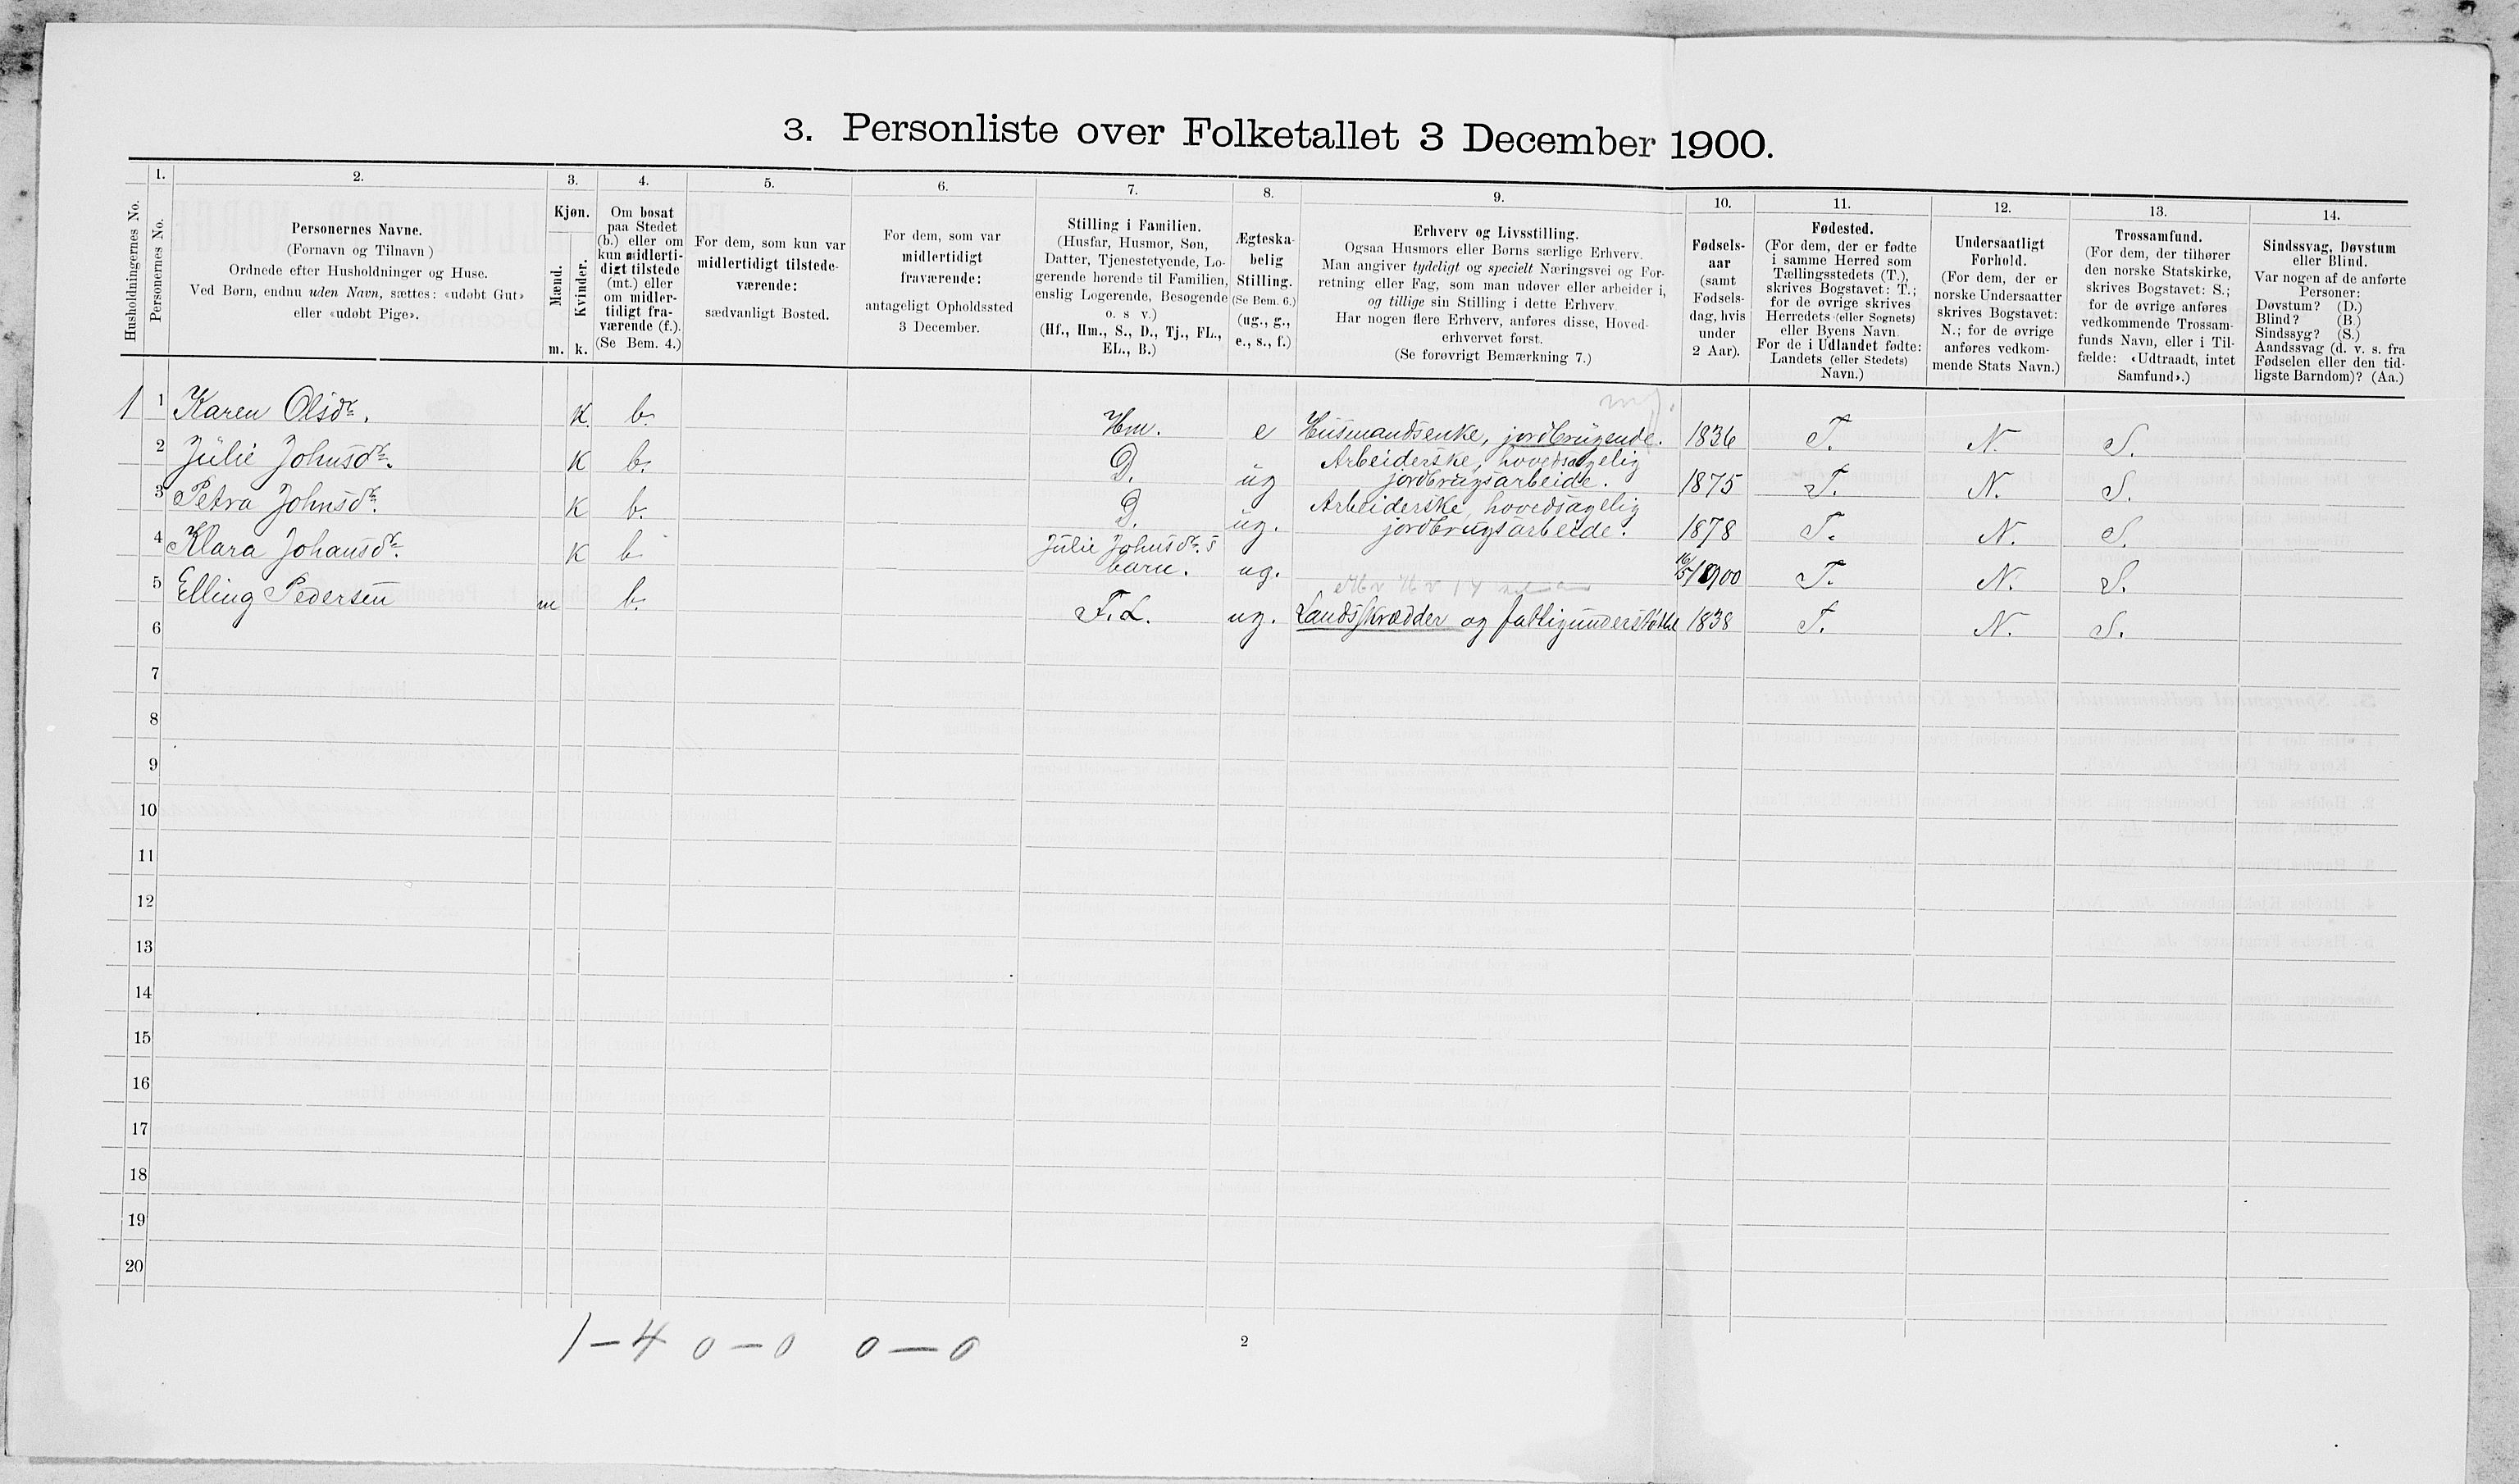 3. Personliste over Folketallet 3 December 1900.
Husholdningernes No.
1.
Personernes No.
2.
Personernes Navne.
(Fornavn og Tilnavn)
Ordnede efter Husholdninger og Huse.
Ved Børn, endnu uden Navn, sættes: «udøbt Gut»
eller «udøbt Pige».
3.
Kjøn.
Mænd.
Kvinder.
m. k.
4.
Om bosat
paa Stedet
(b.) eller om
kun midlerti-
digt tilstede
(mt.) eller
om midler-
tidigt fra-
værende (f.).
(Se Bem. 4.)
5.
For dem, som kun var
midlertidigt tilstede-
værende:
sædvanligt Bosted.
6.
For dem, som var
midlertidigt
fraværende:
antageligt Opholdssted
3 December.
7.
Stilling i Familien.
(Husfar, Husmor, Søn,
Datter, Tjenestetyende, Lo-
gerende hørende til Familien,
enslig Logerende, Besøgende
o. s v.)
(Hf., Hm., S., D., Tj., FL.,
EL., B.)
8.
Ægteska-
belig
Stilling.
(Se Bem. 6.)
(ug., g.,
e., s., f.)
9.
Erhverv og Livsstilling.
Ogsaa Husmors eller Børns særlige Erhverv.
Man angiver tydeligt og specielt Næringsvei og For-
retning eller Fag, som man udøver eller arbeider i,
og tillige sin Stilling i dette Erhverv.
Har nogen flere Erhverv, anføres disse, Hoved-
erhvervet først.
(Se forøvrigt Bemærkning 7.)
10.
Fødsels-
aar
(samt
Fødsels-
dag, hvis
under
2 Aar).
11.
Fødested.
(For dem, der er fødte
i samme Herred som
Tællingsstedets (T.),
skrives Bogstavet: T.;
for de øvrige skrives
Herredets (eller Sognets)
eller Byens Navn.
For de i Udlandet fødte:
Landets (eller Stedets)
Navn.)
12.
Undersaatligt
Forhold.
(For dem, der er
norske Undersaatter
skrives Bogstavet:
N.; for de øvrige
anføres vedkom-
mende Stats Navn.)
13.
Trossamfund.
(For dem, der tilhører
den norske Statskirke,
skrives Bogstavet: S.;
for de øvrige anføres
vedkommende Trossam-
funds Navn, eller i Til-
fælde: «Udtraadt, intet
Samfund».)
14.
Sindssvag, Døvstum
eller Blind.
Var nogen af de anførte
Personer:
Døvstum? (D.)
Blind? (B.)
Sindssyg? (S.)
Aandssvag (d. v. s. fra
Fødselen eller den tid-
ligste Barndom)? (Aa.)
1 1 Karen Olsdtr. K. b. Hm. e Husmandsenke, jordbrugende. 1836 T. N. S.
2 Julie Johnsdtr. K b. D. ug Arbeiderske, hovedsagelig
jordbrugsarbeide. 1875 T. N. S.
3 Petra Johnsdtr. K b. D. ug. Arbeiderske, hovedsagelig
jordbrugsarbeide. 1878 T. N. S.
4 Klara Johansdtr. K b Julie Johnsdtr. s
barn. ug. 16/5 1900 T. N. S.
5 Elling Pedersen m b. F.L. ug. Landsskrædder og fattigunderstøttet 1838 T. N. S.
6
7
8
9
10
11
12
13
14
15
16
17
18
19
20
1 – 4 0 – 0 0 – 0
2